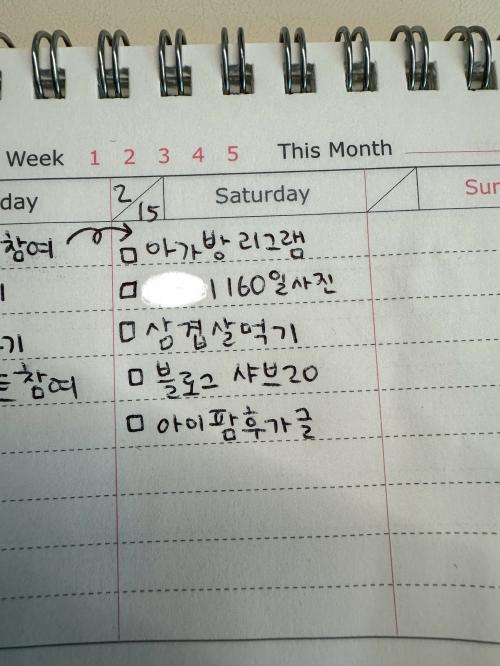 Week 1 2 3 4 5 This Month
day 2/15 Saturday Sun
참여 □ 아가방 리그램
□ 1160일사진
기 □ 삼겹살먹기
트참여 □ 블로그 샤브20
□ 아이팜후가글